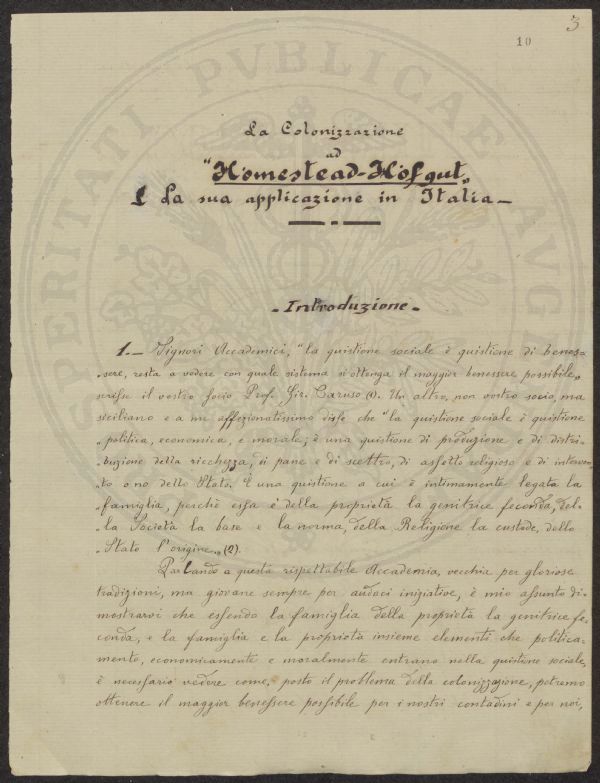 3
10
La Colonizzazione
ad
"Homestead-Hofgut"
E la sua applicazione in Italia_
- Introduzione -
1._ Signori Accademici, "la quistione sociale è quistione di benes-
"sere, resta a vedere con quale sistema si ottenga il maggior benessere possibile"
scrisse il vostro Socio Prof. Gir. Caruso (1). Un altro, non vostro socio, ma
siciliano e a me affezionatissimo disse che "la quistione sociale è quistione
"politica, economica, e morale; è una quistione di produzione e di distri-
"buzione della ricchezza, di pane e di scettro, di assetto religioso e di interven-
"to o no dello Stato. È una quistione a cui è intimamente legata la
"famiglia, perchè essa è della proprietà la genitrice feconda, del-
"la Società la base e la norma, della Religione la custode, dello
"Stato l'origine" (2).
Parlando a questa rispettabile Accademia, vecchia per gloriose
tradizioni, ma giovane sempre per audaci iniziative, è mio assunto di-
mostrarvi che essendo la famiglia della proprietà la genitrice fe-
conda, e la famiglia e la proprietà insieme elementi che politica-
mente, economicamente e moralmente entrano nella quistione sociale,
è necessario vedere come, posto il problema della colonizzazione, potremo
ottenere il maggior benessere possibile per i nostri contadini e per noi,
SPERITATI PVBLICAE AVG